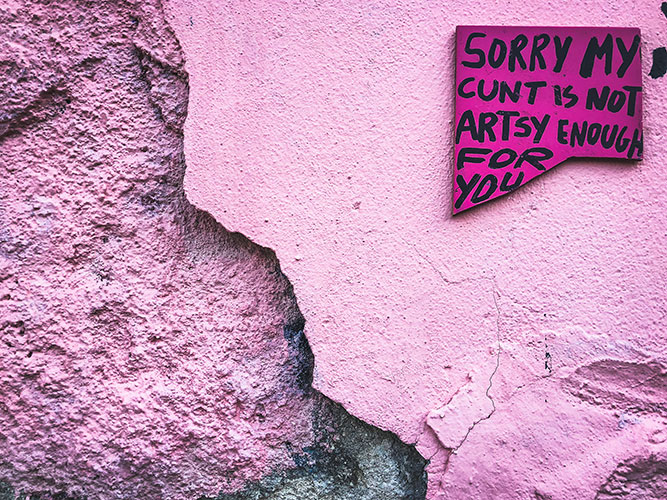 SORRY MY
CUNT IS NOT
ARTSY ENOUGH
FOR
YOU